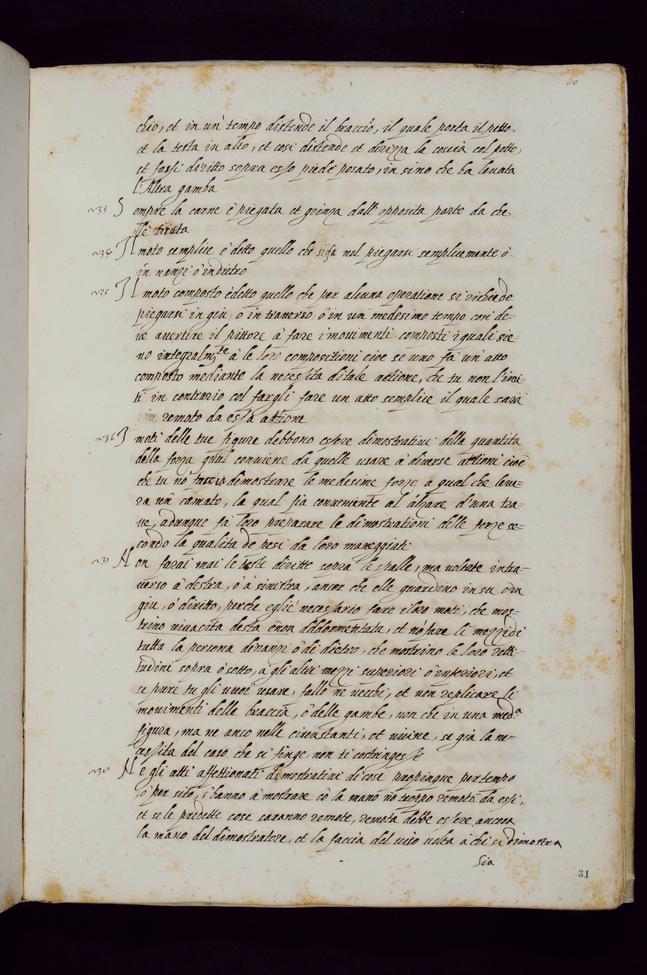 60
chio, et in un tempo distende il braccio, il quale porta il petto,
et la testa in alto, et cosi distende et dirizza la coscia col petto,
et fassi diritto sopra esso piede posato, in sino che ha levata
l'Altra gamba
S ompre la carne è piegata et grinza dall'opposita parte da che
Il moto semplice è detto quello che si fa nel piegarsi semplicemente ò
in nanzi ò indietro
Il moto composto è detto quello che per alcuna operatione si richiede
piegarsi in giu, ò in traverso, ò in un medesimo tempo cosi de=
ve avertire il pittore à fare i movimenti composti i quali sie=
no integralm.te à le loro compositioni cioe se uno fa un atto
composto mediante la necessita di tale attione, che tu non l'imi=
ti in contrario col fargli fare un atto semplice il quale sara
remoto da essa attione
I moti delle tue figure debbono essere dimostrativi della quantita
della forza qual conviene da quelle usare à diverse attioni cioè
che tu nō faccia dimostrare le medesime forze à qual che leva=
ra un camato, la qual fia conveniente al alzare d'una tra=
ve, adunque fa loro preparare le dimostrationi delle forze se=
condo la qualita de pesi da loro maneggiati
N on farai mai le teste diritte sopra le spalle, ma voltate intra=
verso à destra, ò à sinistra, anchor che elle guardino in su, ò in
giu, ò diritto, perche eglie necessario fare i loro moti, che mos=
trino vivacita desta e non addormentata, et nō fare li mezzi di
tutta la persona dinanzi ò di dietro, che mostrino le loro retti=
tudini sopra ò sotto, à gli altri mezzi superiori ò inferiori, et
se pure tu gli vuoi usare, fallo ne vecchi, et non replicare li
movimenti delle braccia, ò delle gambe, non che in una med.a
figura, ma ne anco nelle circunstanti, et vicine, se già la ne=
cessita del caso, che si finge, non ti costringesse
N e gli atti affettionati dimostrativi di cose propinque per tempo
ò per sito, s'hanno à mostrare cō la mano nō troppo remota da essi,
et se le predette cose saranno remote, remota debbe essere ancora
la mano del dimostratore, et la faccia del viso volta à chi si dimostra
Sia
81